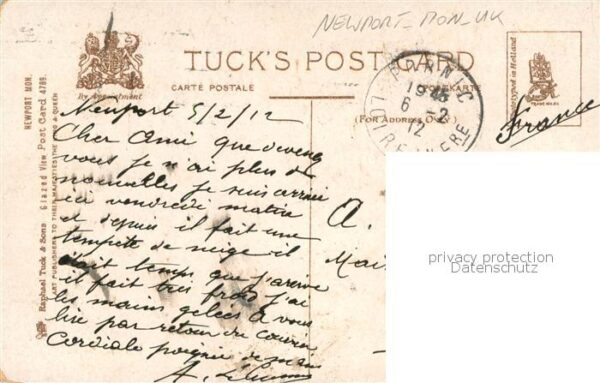 NEWPORT MON UK
TUCK'S POST CARD
By Appointment
CARTE POSTALE
POSTKARTE
(FOR ADDRESS ONLY)
Phototyped in Holland
PORNIC
19 45
6 - 2
12
LOIRE INFRE
France
NEWPORT MON.
Raphael Tuck & Sons Glazed View Post Card 4789.
ART PUBLISHERS TO THEIR MAJESTIES THE KING & QUEEN
Newport 5/2/12
Cher Ami que devenez
vous je n'ai plus de
nouvelles je suis arrivé
ici vendredi matin
et depuis il fait une
tempête de neige il
était temps que j'arrive
il fait très froid j'ai
les mains gelées à vous
lire par retour du courrier
Cordiale poignée de main
A.
A.
Mai
privacy protection
Datenschutz